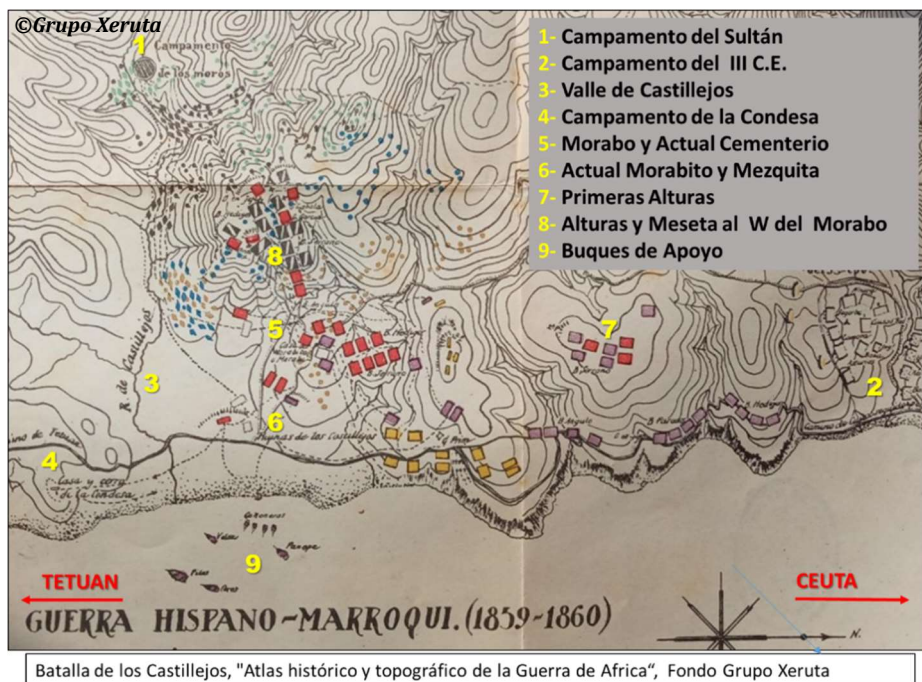 ©Grupo Xeruta
1
Campamento
de los moros
1- Campamento del Sultán
2- Campamento del III C.E.
3- Valle de Castillejos
4- Campamento de la Condesa
5- Morabo y Actual Cementerio
6- Actual Morabito y Mezquita
7- Primeras Alturas
8- Alturas y Meseta al W del Morabo
9- Buques de Apoyo
8
5
7
R. de Castillejos
3
2
6
4
Casa y
de la Condesa
9
TETUAN
CEUTA
GUERRA HISPANO-MARROQUI. (1859-1860)
N.
Batalla de los Castillejos, "Atlas histórico y topográfico de la Guerra de Africa“, Fondo Grupo Xeruta